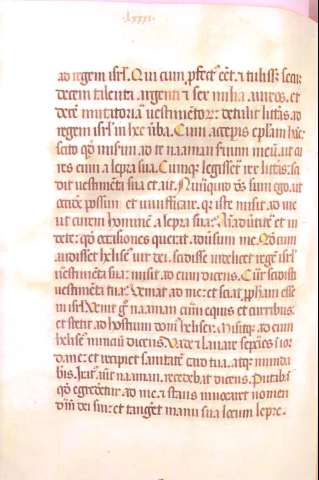 .lxxxi.
ad regem isrl. Qui cum pfect' eēt. et tulisset secū
decem talenta argenti et sex milia aureos. et
decē mutatoria vestimētorū: detulit litt'as ad
regem isrl' in hec v̄ba. Cum acceperis eplam hāc
scito qd miserim ad te naaman seruum meū. ut cu
res eum a lepra sua. Cumq; legisset rex litt'as: sci
dit vestimēta sua et ait. Nunquid ds sum ego. ut
occidē possim et uiuificare. qr iste misit ad me
ut curem hominē a lepra sua? Aīaduertite et ui
dete: qd occasiones querat aduersum me. Qd cum
audisset helise' uir dei. scidisse uidelicet regē isrl'
vestimēta sua: misit ad eum dicens. Cur scidisti
vestimēta tua? Veniat ad me: et sciat ppham esse
in isrl'. Venit g° naaman cum equis et curribus:
et stetit ad hostium dom' helisei. Misitq; ad eum
helise' nunciū dicens. Vade et lauare septies i ior
dane: et recipiet sanitatē caro tua. atq; munda
beris. Irat' naaman. recedebat dicens. Putabā
qd egrederetur ad me. et stans inuocaret nomen
dn̄i dei sui: et tangeret manu sua locum lepre.